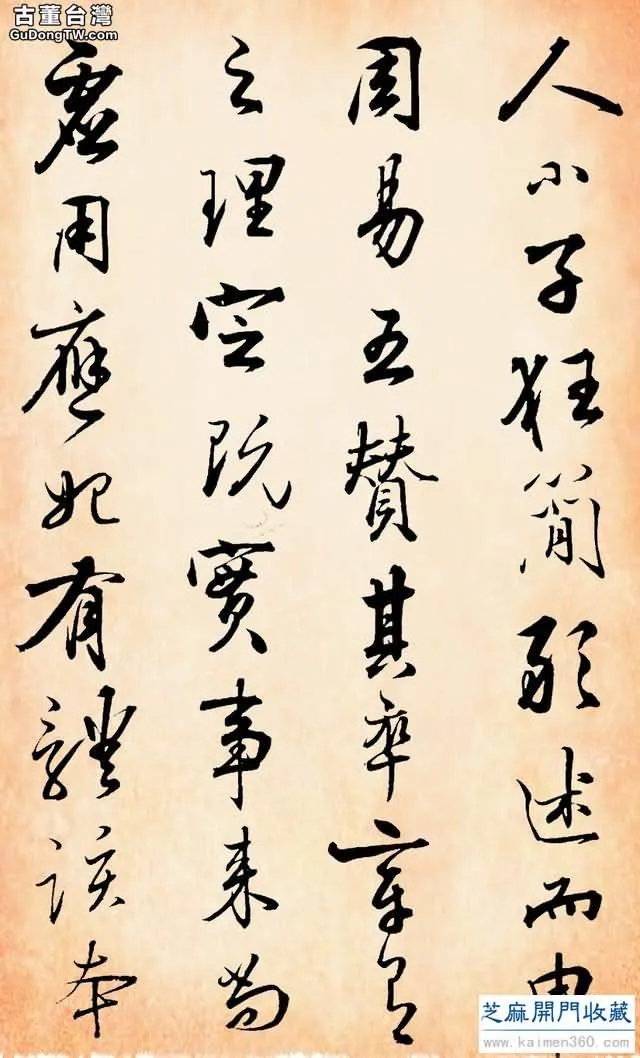 古董台灣
GuDongTW.com
人小子狂簡敢述而
周易五贊其卒章曰
之理定既實事来尚
虚用應始有體該本
芝麻開門收藏
www.kaimen360.com